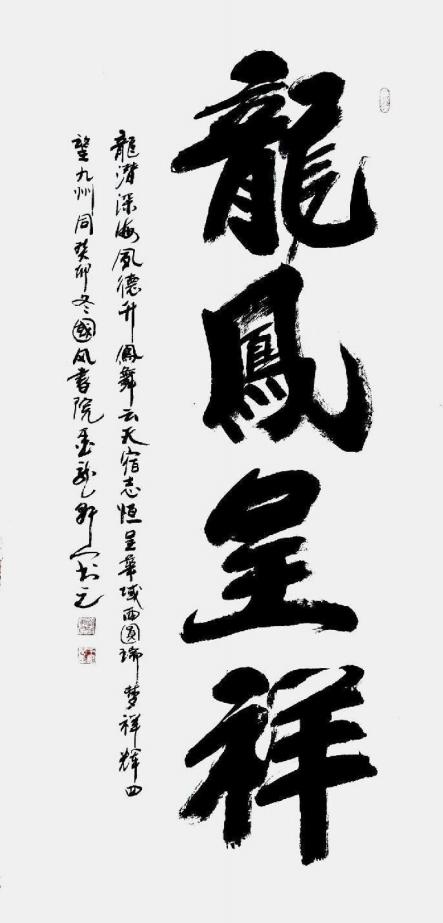 龍鳳呈祥
龍潛深海風德升鳳舞云天宿志恒呈華域而圓瑞夢祥輝四
望九州同癸卯冬國風書院